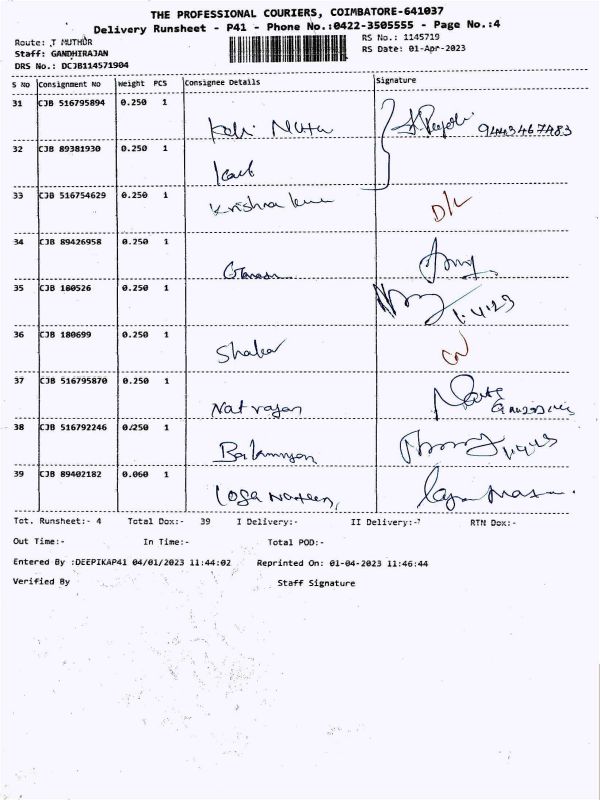 THE PROFESSIONAL COURIERS, COIMBATORE-641037
Delivery Runsheet - P41 - Phone No.:0422-3505555 - Page No.:4
Route: T MUTHUR
RS No.: 1145719
Staff: GANDHIRAJAN
RS Date: 01-Apr-2023
DRS No.: DCJB114571904
S No Consignment No Weight PCS Consignee Details Signature
31 CJB 516795894 0.250 1
32 CJB 89381930 0.250 1
33 CJB 516754629 0.250 1 Krishna D/L
34 CJB 89426958 0.250 1
35 CJB 180526 0.250 1 1.4.23
36 CJB 180699 0.250 1
37 CJB 516795870 0.250 1 Natrajan
38 CJB 516792246 0.250 1
39 CJB 89402182 0.060 1 Loga
Tot. Runsheet:- 4 Total Dox:- 39 I Delivery:- II Delivery:-7 RTN Dox:-
Out Time:- In Time:- Total POD:-
Entered By :DEEPIKAP41 04/01/2023 11:44:02 Reprinted On: 01-04-2023 11:46:44
Verified By Staff Signature